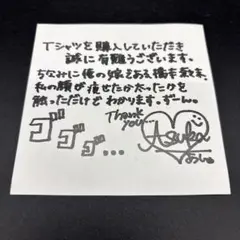 Tシャツを購入していただき
誠に有難うございます。
ちなみに俺の嫁である橋本敦は、
私の顔が痩せたか太ったかを
触っただけでわかります。ずーん。
Thank
you...
ゴゴゴ...
Asuka